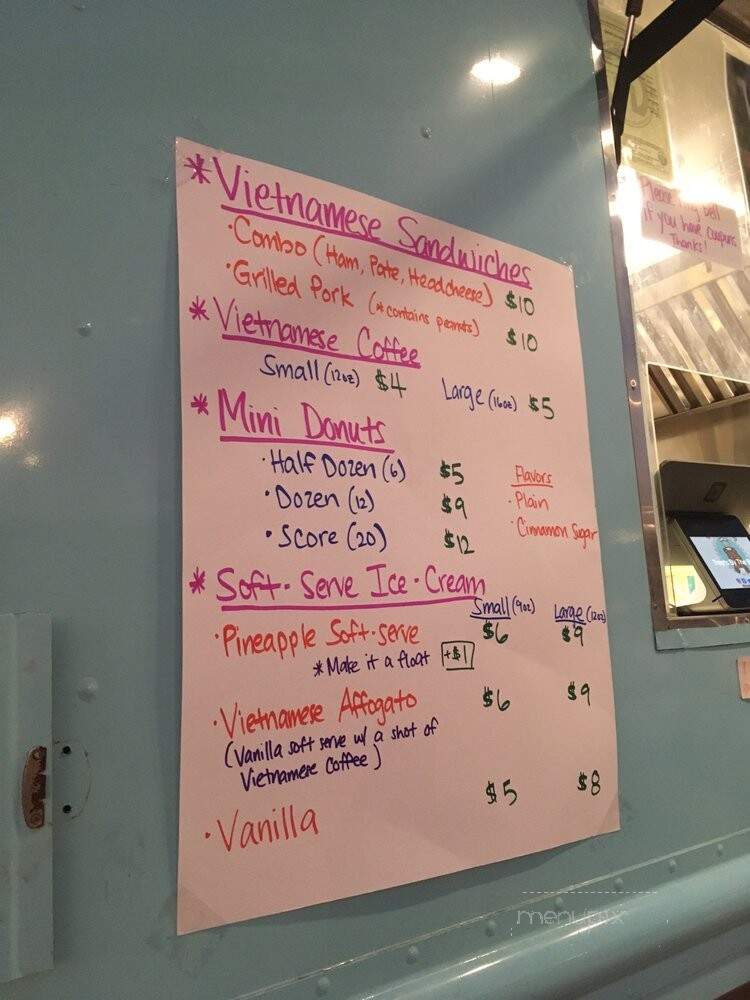 *Vietnamese Sandwiches
·Combo (Ham, Pate, Headcheese) $10
·Grilled Pork (*contains peanuts) $10
*Vietnamese Coffee
Small (12oz) $4 Large (16oz) $5
*Mini Donuts
·Half Dozen (6) $5
·Dozen (12) $9
·Score (20) $12
Flavors
·Plain
·Cinnamon Sugar
*Soft-Serve Ice-Cream
Small (9oz) Large (12oz)
·Pineapple Soft-serve $6 $9
*Make it a float +$1
·Vietnamese Affogato $6 $9
(Vanilla soft serve w/ a shot of
Vietnamese Coffee)
·Vanilla $5 $8
Please bell
if you have coupons
Thanks!
menupix